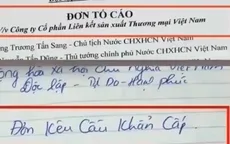 ĐƠN TỐ CÁO
V/v Công ty Cổ phần Liên kết sản xuất Thương mại Việt Nam
Trương Tấn Sang - Chủ tịch Nước CHXHCN Việt Nam
Tấn Dũng - Thủ tướng chính phủ Nước CHXHCN Việt Nam
hòa xã hội Chủ Nghĩa Việt Nam
Độc lập - Tự Do - Hạnh phúc
Đơn Kêu Cứu Khẩn Cấp